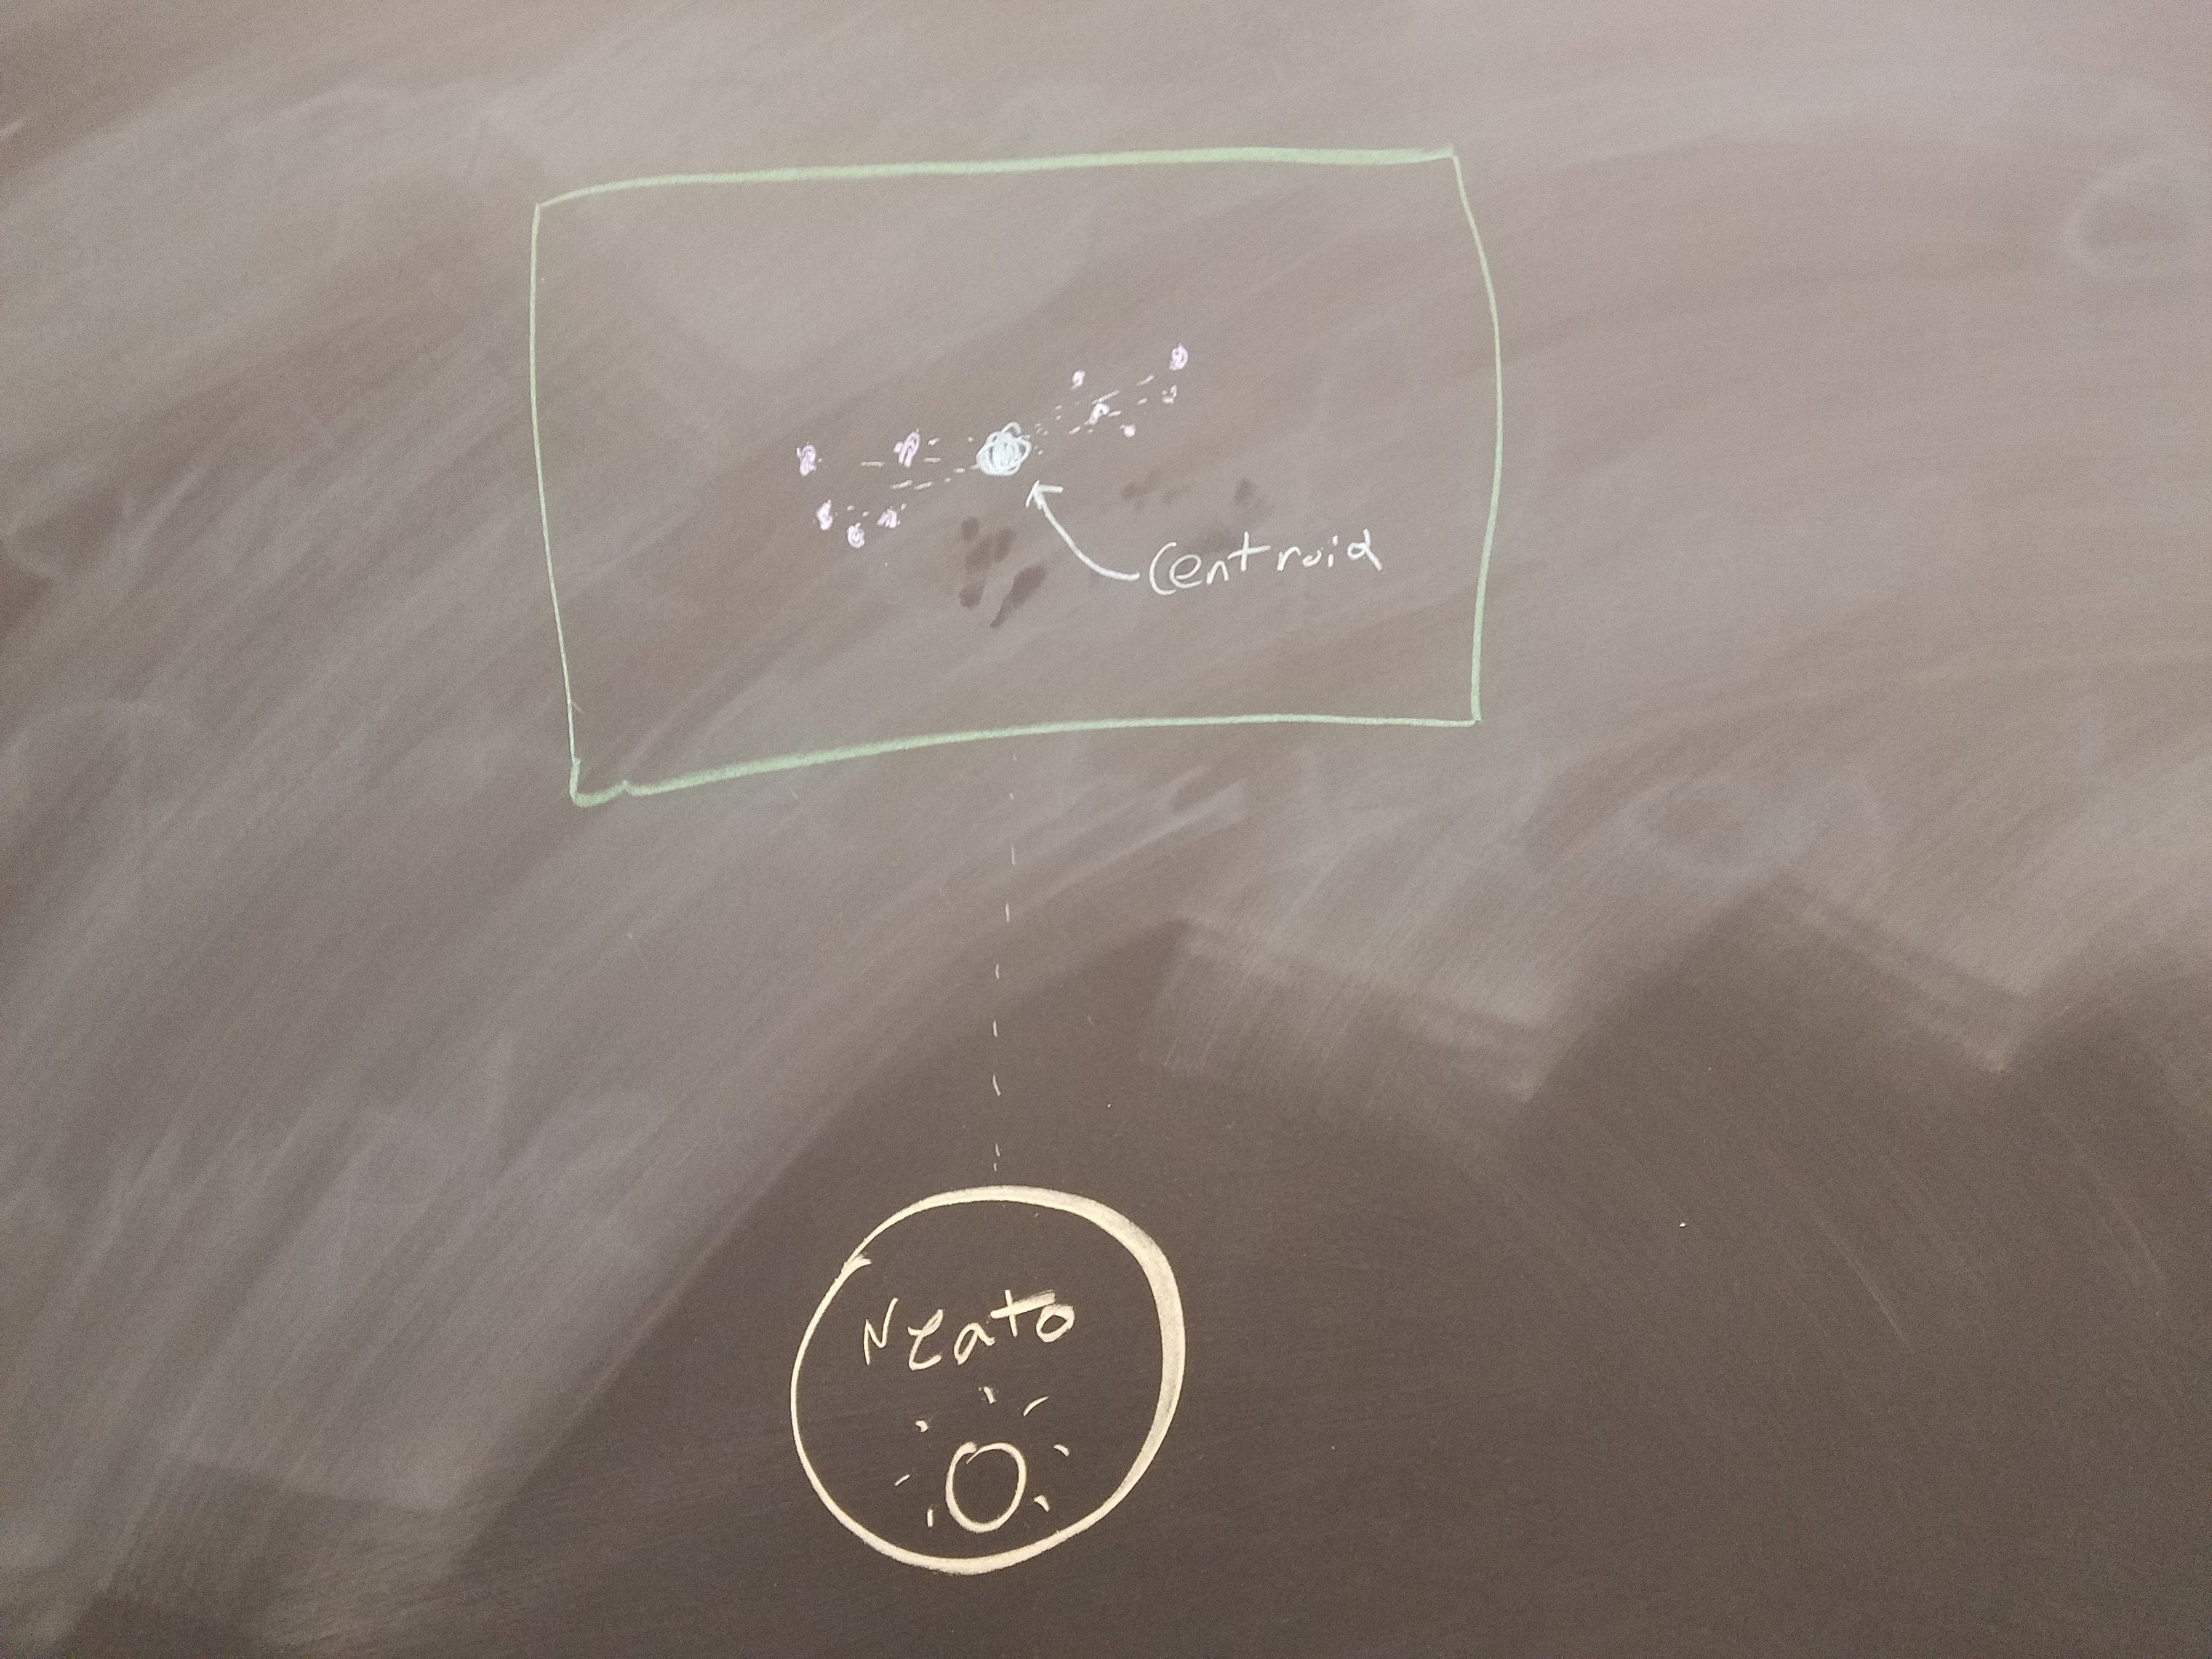 Centroid
Neato